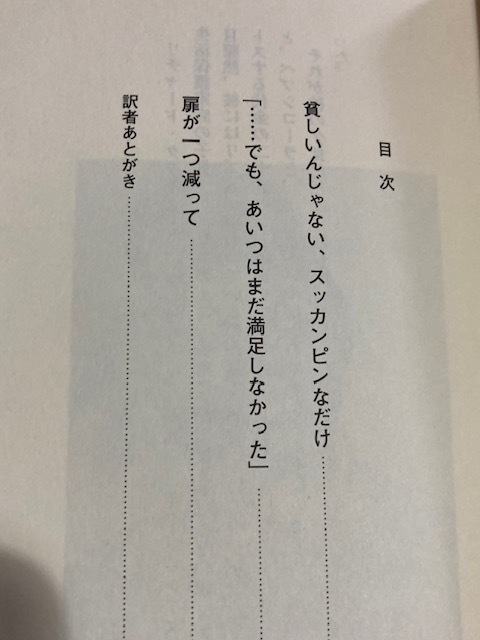 目次
貧しいんじゃない、スッカンピンなだけ……………
「……でも、あいつはまだ満足しなかった」……………
扉が一つ減って……………
訳者あとがき……………